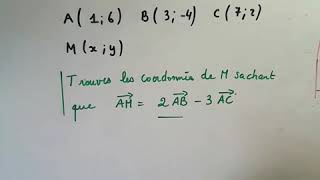 A ( 1 ; 6 ) B ( 3 ; -4 ) C ( 7 ; 2 )
M ( x ; y )
Trouvez les coordonnées de M sachant
que AM = 2 AB - 3 AC